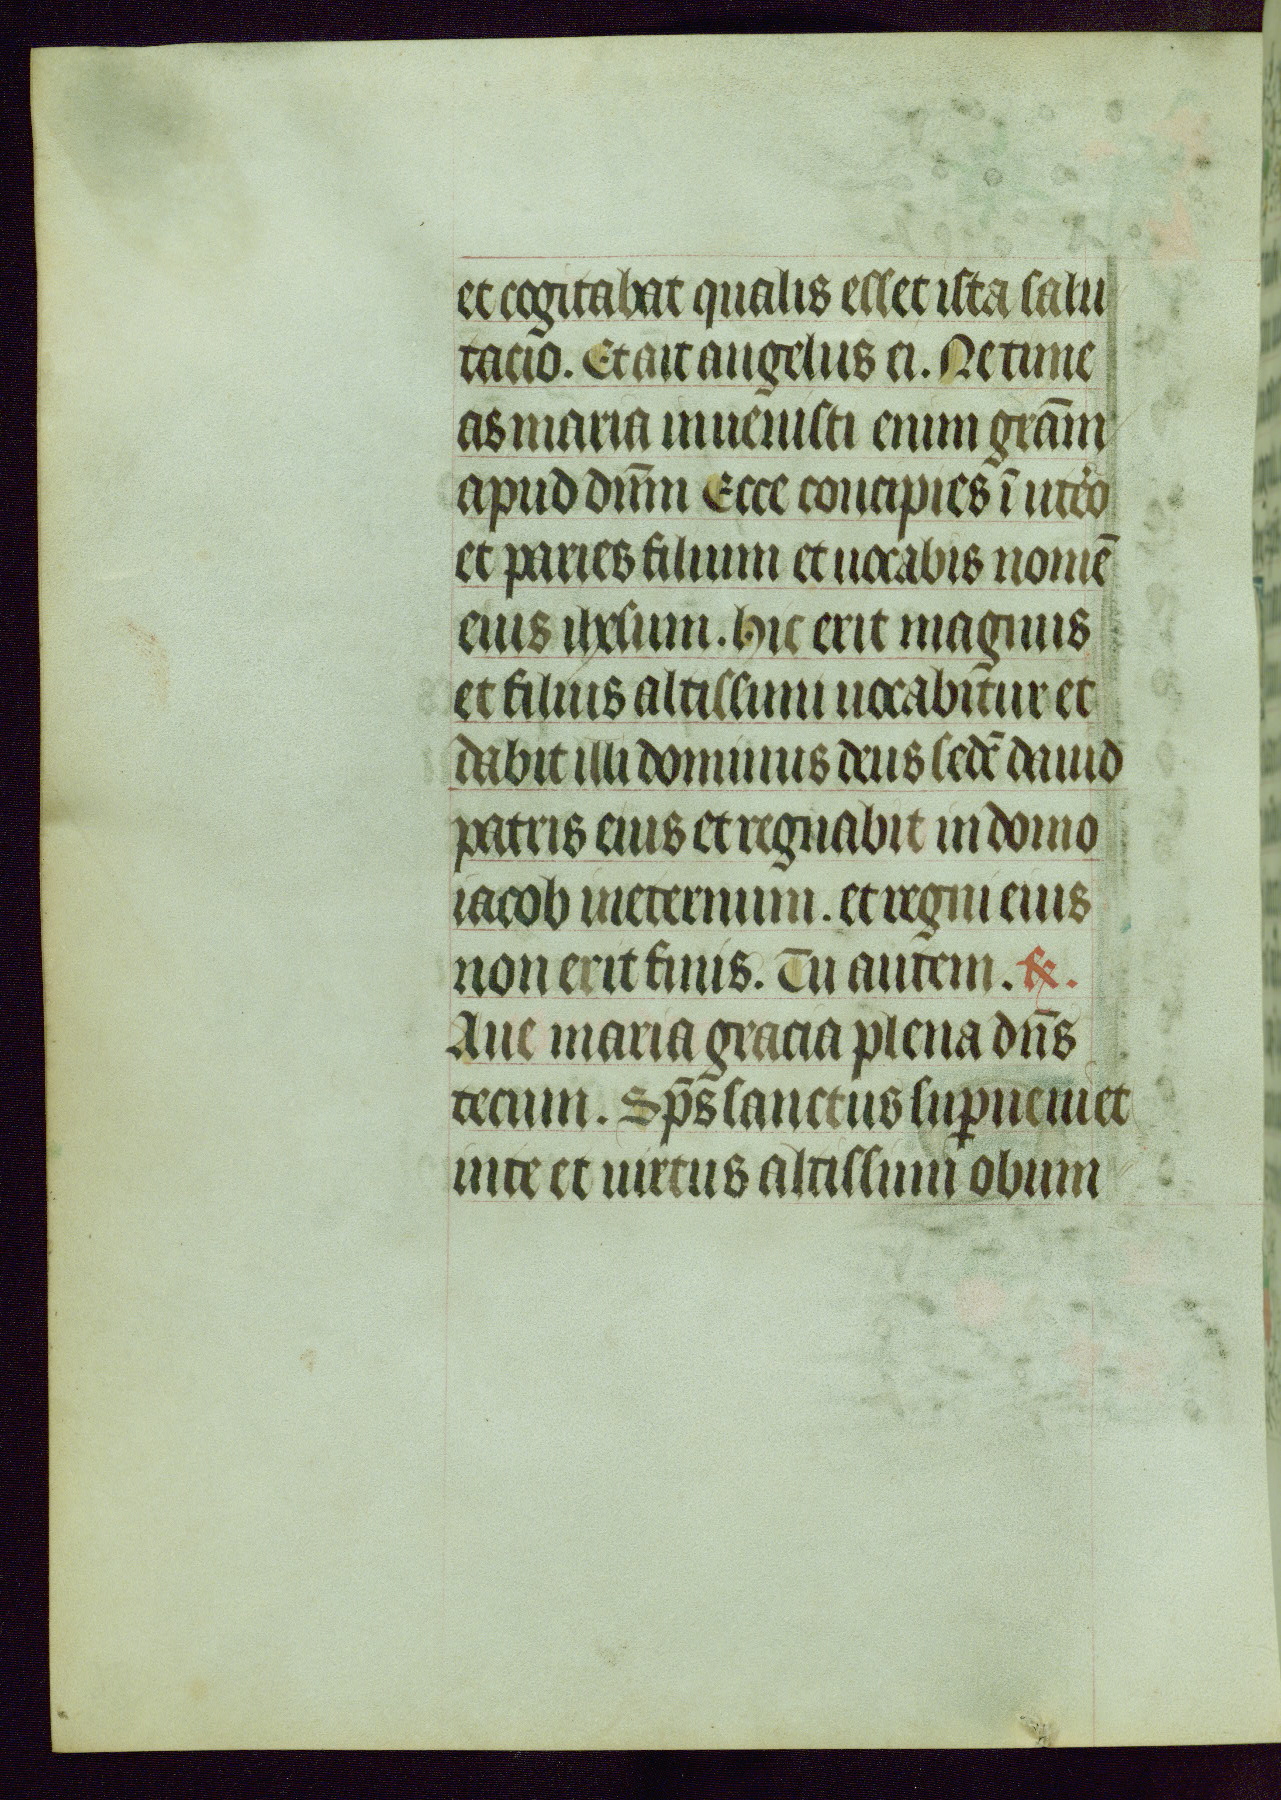 et cogitabat qualis esset ista salu
tacio. Et ait angelus ei. Ne time
as maria invenisti enim gr̄am
apud dn̄m Ecce concipies ī utero
et paries filium et vocabis nomē
eius ihesum. Hic erit magnus
et filius altissimi vocabitur et
dabit illi dominus deus sedē david
patris eius et regnabit in domo
iacob ineternum. et regni eius
non erit finis. Tu autem. ℟.
Ave maria gracia plena dn̄s
tecum. Sp̄s sanctus suꝑveniet
inte et virtus altissimi obum